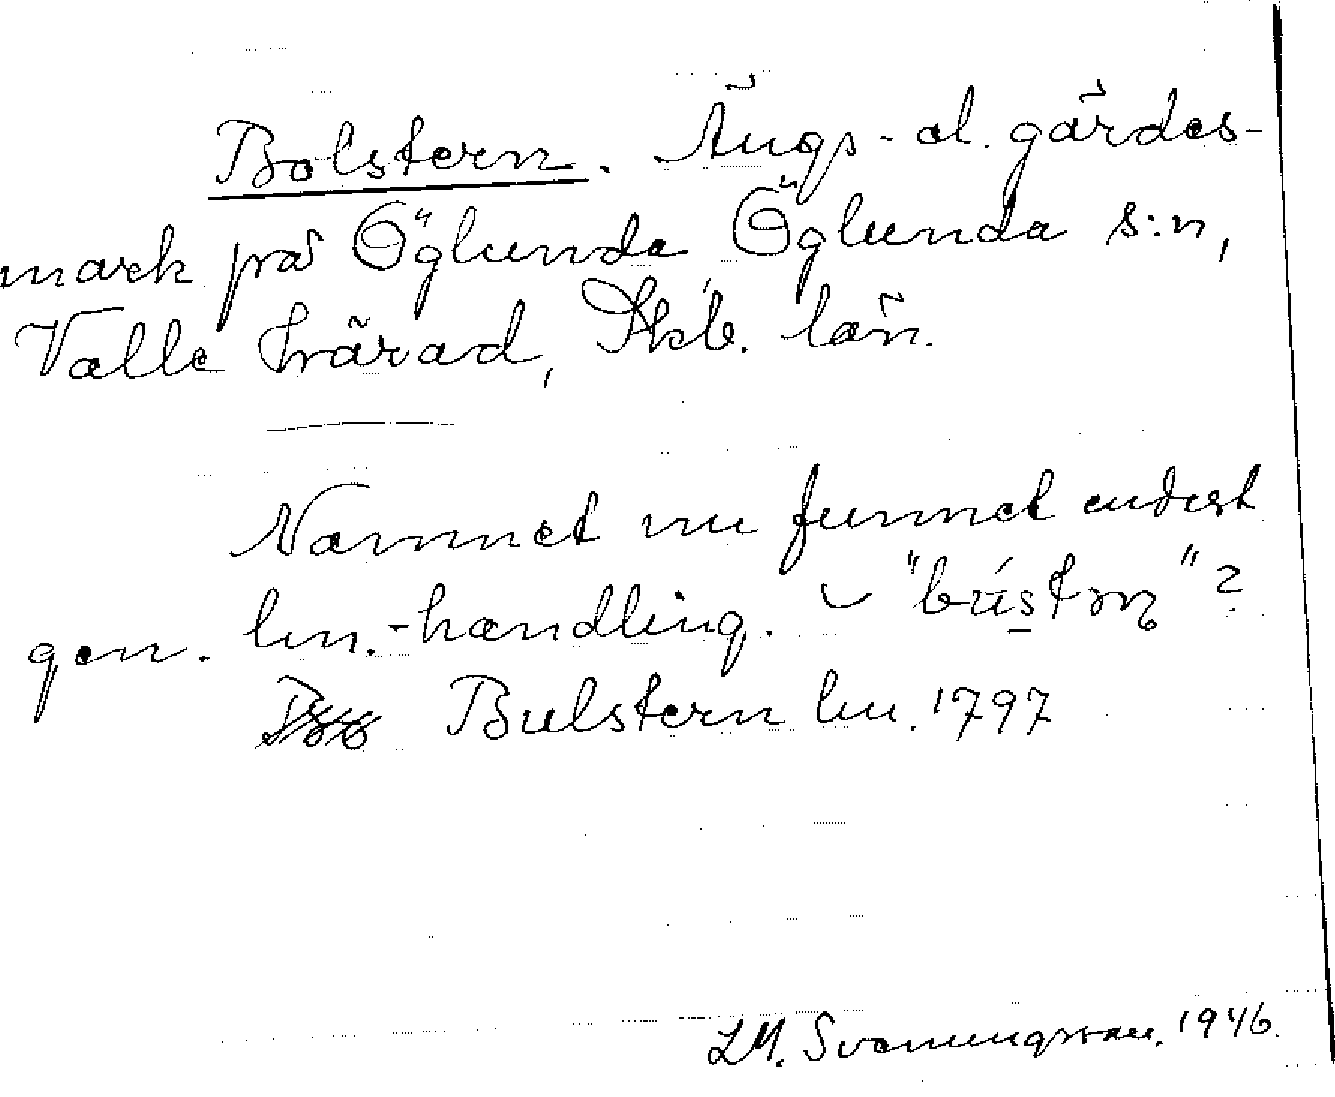 Bolstern. Ängs- al. gärdes-
mark på Öglunda Öglunda s:n,
Valle härad, Skb. län.
Namnet nu funnet endast
gen. lm.-handling. "bústɔrn"?
Bulstern lm. 1797
LM. Svanungsson. 1946.